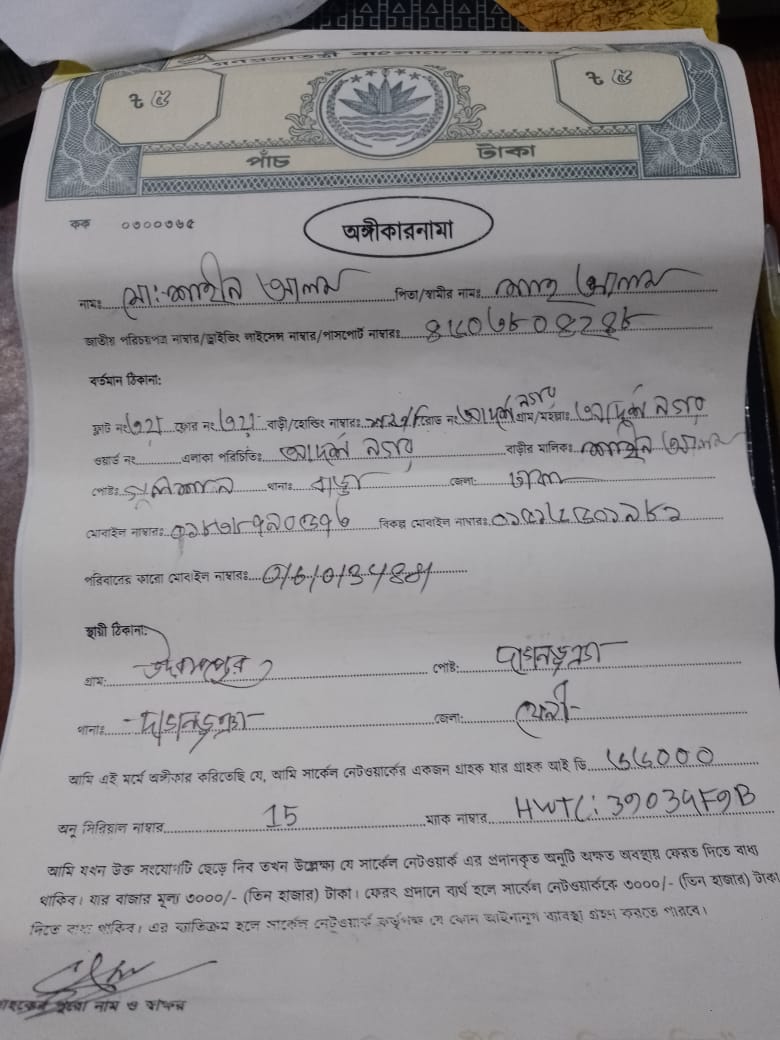 গণপ্রজাতন্ত্রী বাংলাদেশ সরকার
৳ ৫ ৳ ৫
পাঁচ টাকা
কক ০৩০০৩৬৫
অঙ্গীকারনামা
নামঃ মোঃ শাহীন আলম পিতা/স্বামীর নামঃ শাহ আলম
জাতীয় পরিচয়পত্র নাম্বার/ড্রাইভিং লাইসেন্স নাম্বার/পাসপোর্ট নাম্বারঃ
বর্তমান ঠিকানা:
ফ্লাট নং ফ্লোর নং বাড়ী/হোল্ডিং নাম্বারঃ রোড নং আদর্শ নগর গ্রাম/মহল্লাঃ আদর্শ নগর
ওয়ার্ড নং এলাকা পরিচিতিঃ আদর্শ নগর বাড়ীর মালিকঃ শাহীন আলম
পোষ্টঃ গুলশান থানাঃ বাড্ডা জেলাঃ ঢাকা
মোবাইল নাম্বারঃ বিকল্প মোবাইল নাম্বারঃ
পরিবারের কারো মোবাইল নাম্বারঃ
স্থায়ী ঠিকানা:
গ্রামঃ পোষ্টঃ দাগনভূঞা
থানাঃ দাগনভূঞা জেলাঃ ফেনী
আমি এই মর্মে অঙ্গীকার করিতেছি যে, আমি সার্কেল নেটওয়ার্কের একজন গ্রাহক যার গ্রাহক আই ডি
অনু সিরিয়াল নাম্বার 15 ম্যাক নাম্বার HWTC: 39034F9B
আমি যখন উক্ত সংযোগটি ছেড়ে দিব তখন উল্লেখ্য যে সার্কেল নেটওয়ার্ক এর প্রদানকৃত অনুটি অক্ষত অবস্থায় ফেরত দিতে বাধ্য
থাকিব। যার বাজার মূল্য ৩০০০/- (তিন হাজার) টাকা। ফেরৎ প্রদানে ব্যর্থ হলে সার্কেল নেটওয়ার্ককে ৩০০০/- (তিন হাজার) টাকা
দিতে বাধ্য থাকিব। এর ব্যতিক্রম হলে সার্কেল নেটওয়ার্ক কর্তৃপক্ষ যে কোন আইনানুগ ব্যবস্থা গ্রহণ করতে পারবে।
নাম ও স্বাক্ষর